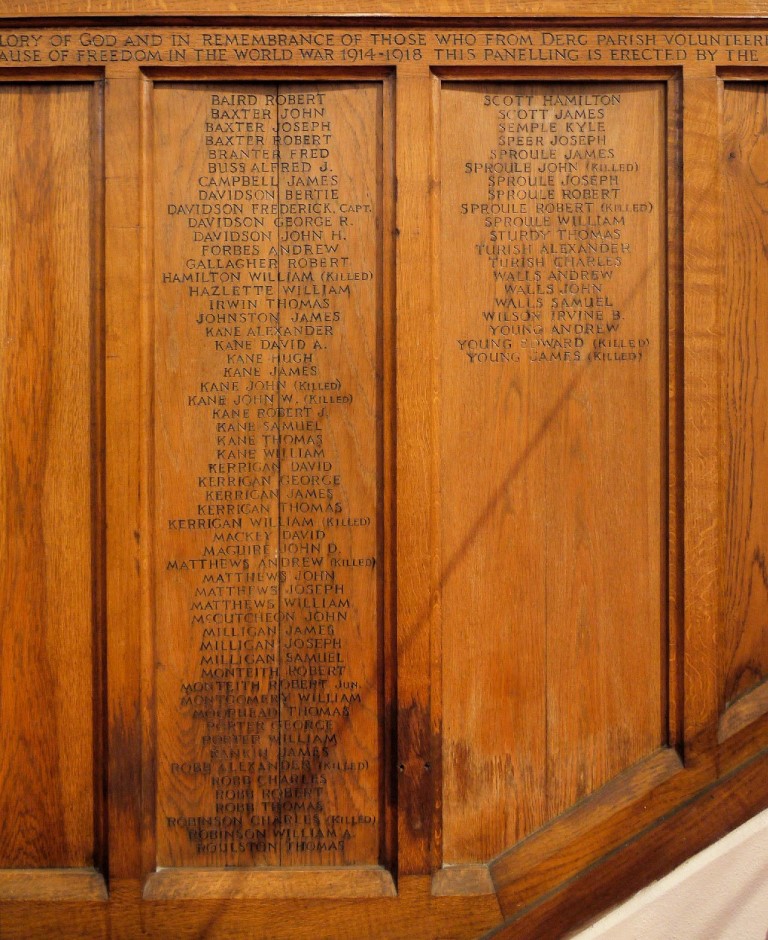 LORY OF GOD AND IN REMEMBRANCE OF THOSE WHO FROM DERG PARISH VOLUNTEERE
AUSE OF FREEDOM IN THE WORLD WAR 1914-1918 THIS PANELLING IS ERECTED BY THE
BAIRD ROBERT
BAXTER JOHN
BAXTER JOSEPH
BAXTER ROBERT
BRANTER FRED
BUSS ALFRED J.
CAMPBELL JAMES
DAVIDSON BERTIE
DAVIDSON FREDERICK. CAPT.
DAVIDSON GEORGE R.
DAVIDSON JOHN H.
FORBES ANDREW
GALLAGHER ROBERT
HAMILTON WILLIAM (KILLED)
HAZLETTE WILLIAM
IRWIN THOMAS
JOHNSTON JAMES
KANE ALEXANDER
KANE DAVID A.
KANE HUGH
KANE JAMES
KANE JOHN (KILLED)
KANE JOHN W. (KILLED)
KANE ROBERT J.
KANE SAMUEL
KANE THOMAS
KANE WILLIAM
KERRIGAN DAVID
KERRIGAN GEORGE
KERRIGAN JAMES
KERRIGAN THOMAS
KERRIGAN WILLIAM (KILLED)
MACKEY DAVID
MAGUIRE JOHN D.
MATTHEWS ANDREW (KILLED)
MATTHEWS JOHN
MATTHEWS JOSEPH
MATTHEWS WILLIAM
MCCUTCHEON JOHN
MILLIGAN JAMES
MILLIGAN JOSEPH
MILLIGAN SAMUEL
MONTEITH ROBERT
MONTEITH ROBERT JUN.
MONTGOMERY WILLIAM
MOORHEAD THOMAS
PORTER GEORGE
PORTER WILLIAM
RANKIN JAMES
ROBB ALEXANDER (KILLED)
ROBB CHARLES
ROBB ROBERT
ROBB THOMAS
ROBINSON CHARLES (KILLED)
ROBINSON WILLIAM A.
ROULSTON THOMAS
SCOTT HAMILTON
SCOTT JAMES
SEMPLE KYLE
SPEER JOSEPH
SPROULE JAMES
SPROULE JOHN (KILLED)
SPROULE JOSEPH
SPROULE ROBERT
SPROULE ROBERT (KILLED)
SPROULE WILLIAM
STURDY THOMAS
TURISH ALEXANDER
TURISH CHARLES
WALLS ANDREW
WALLS JOHN
WALLS SAMUEL
WILSON IRVINE B.
YOUNG ANDREW
YOUNG EDWARD (KILLED)
YOUNG JAMES (KILLED)